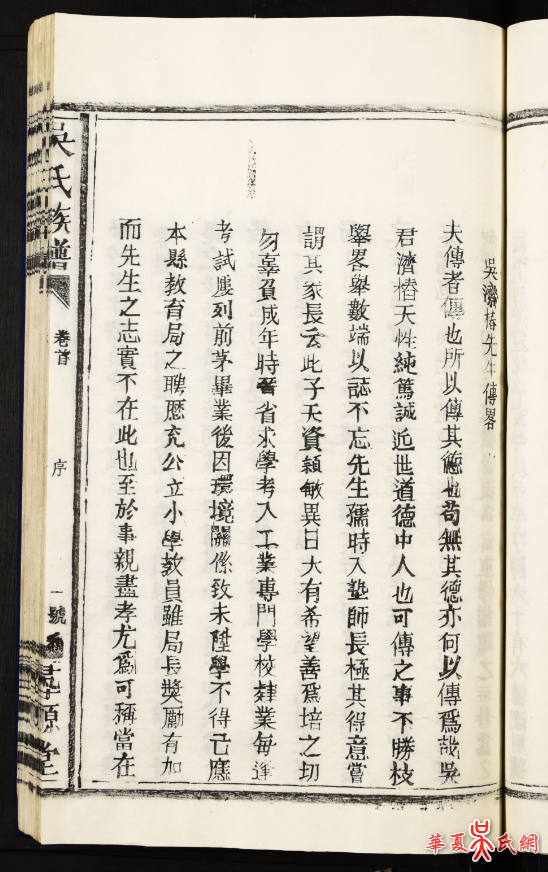 吳濟椿先生傳畧
夫傳者傳也所以傳其德也苟無其德亦何以傳爲哉吳
君濟椿天性純篤誠近世道德中人也可傳之事不勝枝
舉畧舉數端以誌不忘先生孺時入塾師長極其得意嘗
謂其家長云此子天資穎敏異日大有希望善爲培之切
勿辜負成年時晉省求學考入工業專門學校肄業每逢
考試屢列前茅畢業後因環境關係致未陞學不得已應
本縣教育局之聘歷充公立小學教員雖局長獎勵有加
而先生之志實不在此也至於事親盡孝尤爲可稱當在
吳氏族譜
卷首
序
一號
源堂
華夏吳氏網